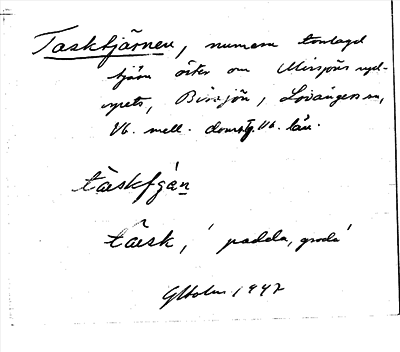 Tasktjärnen, numera torrlagd
tjärn öster om Missjöns nyd-
mets, Bissjön, Lövångers sn,
Vb. mell. doms. Vb. län.
täskfjän
täsk, 'padda, groda'
G Holm 1947